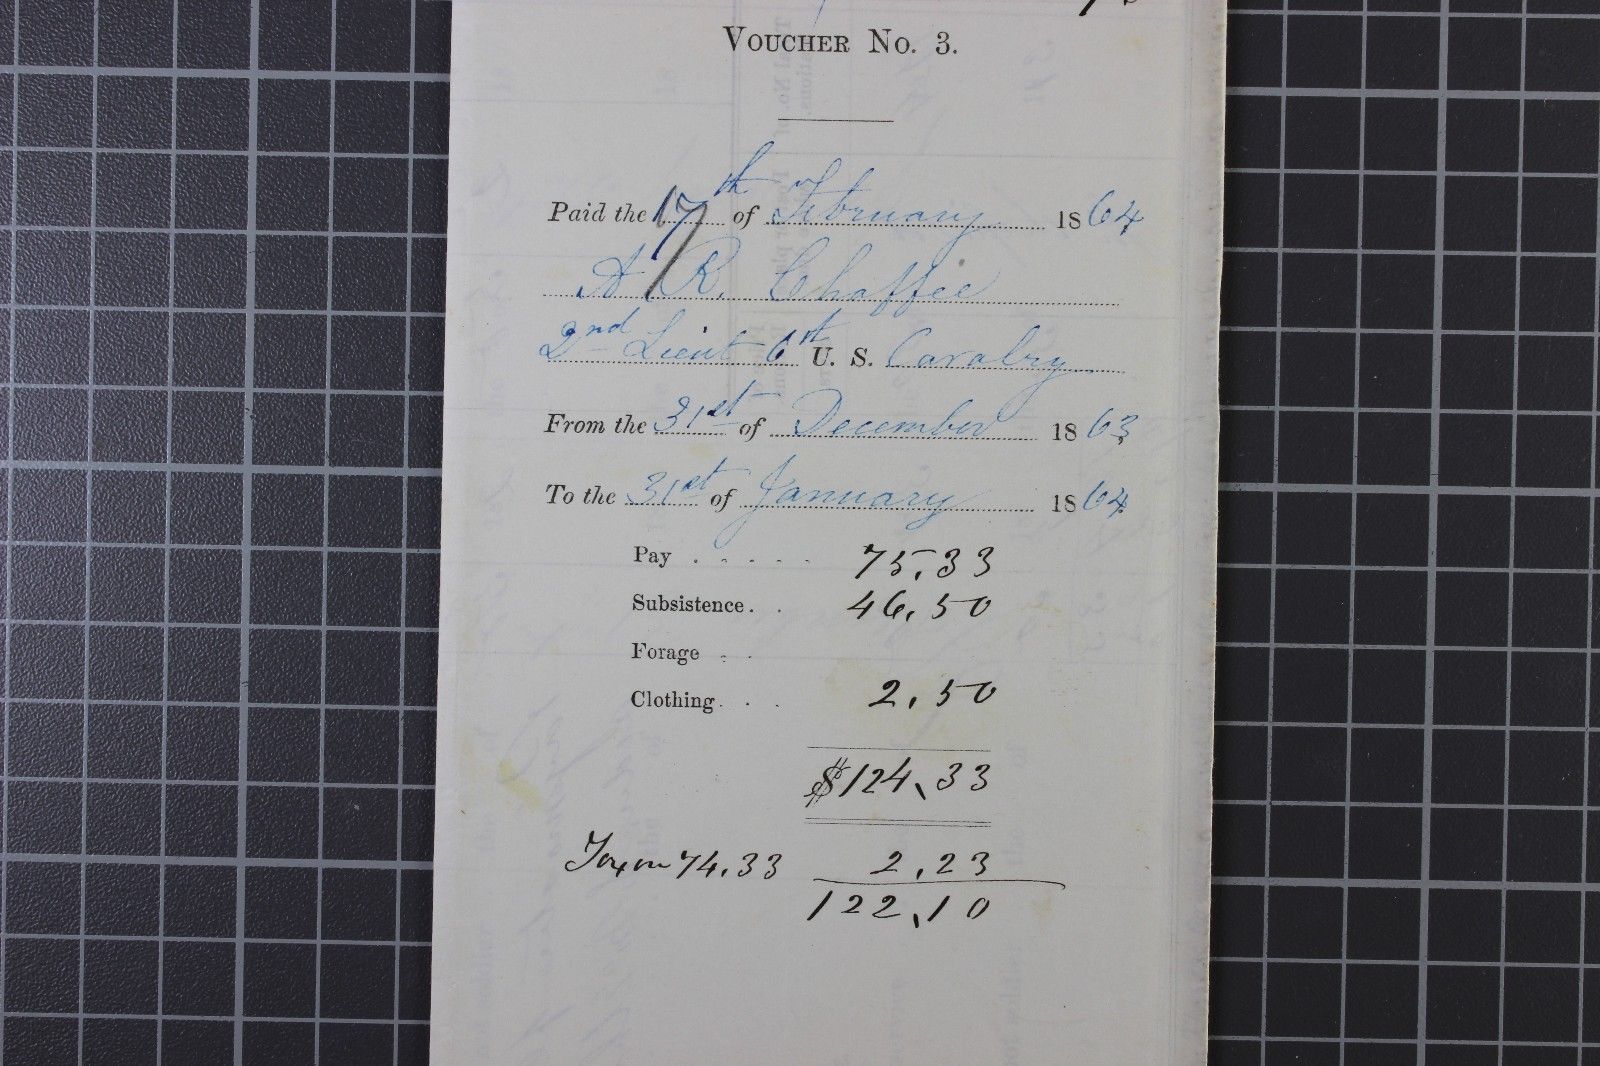 VOUCHER No. 3.
Paid the 17th of February 1864
A R. Chaffee
2nd Lieut 6th U. S. Cavalry
From the 31st of December 1863
To the 31st of January 1864
Pay . . . . . 75.33
Subsistence . . 46.50
Forage . .
Clothing . . . 2.50
$124.33
Tax on 74.33 2.23
122.10